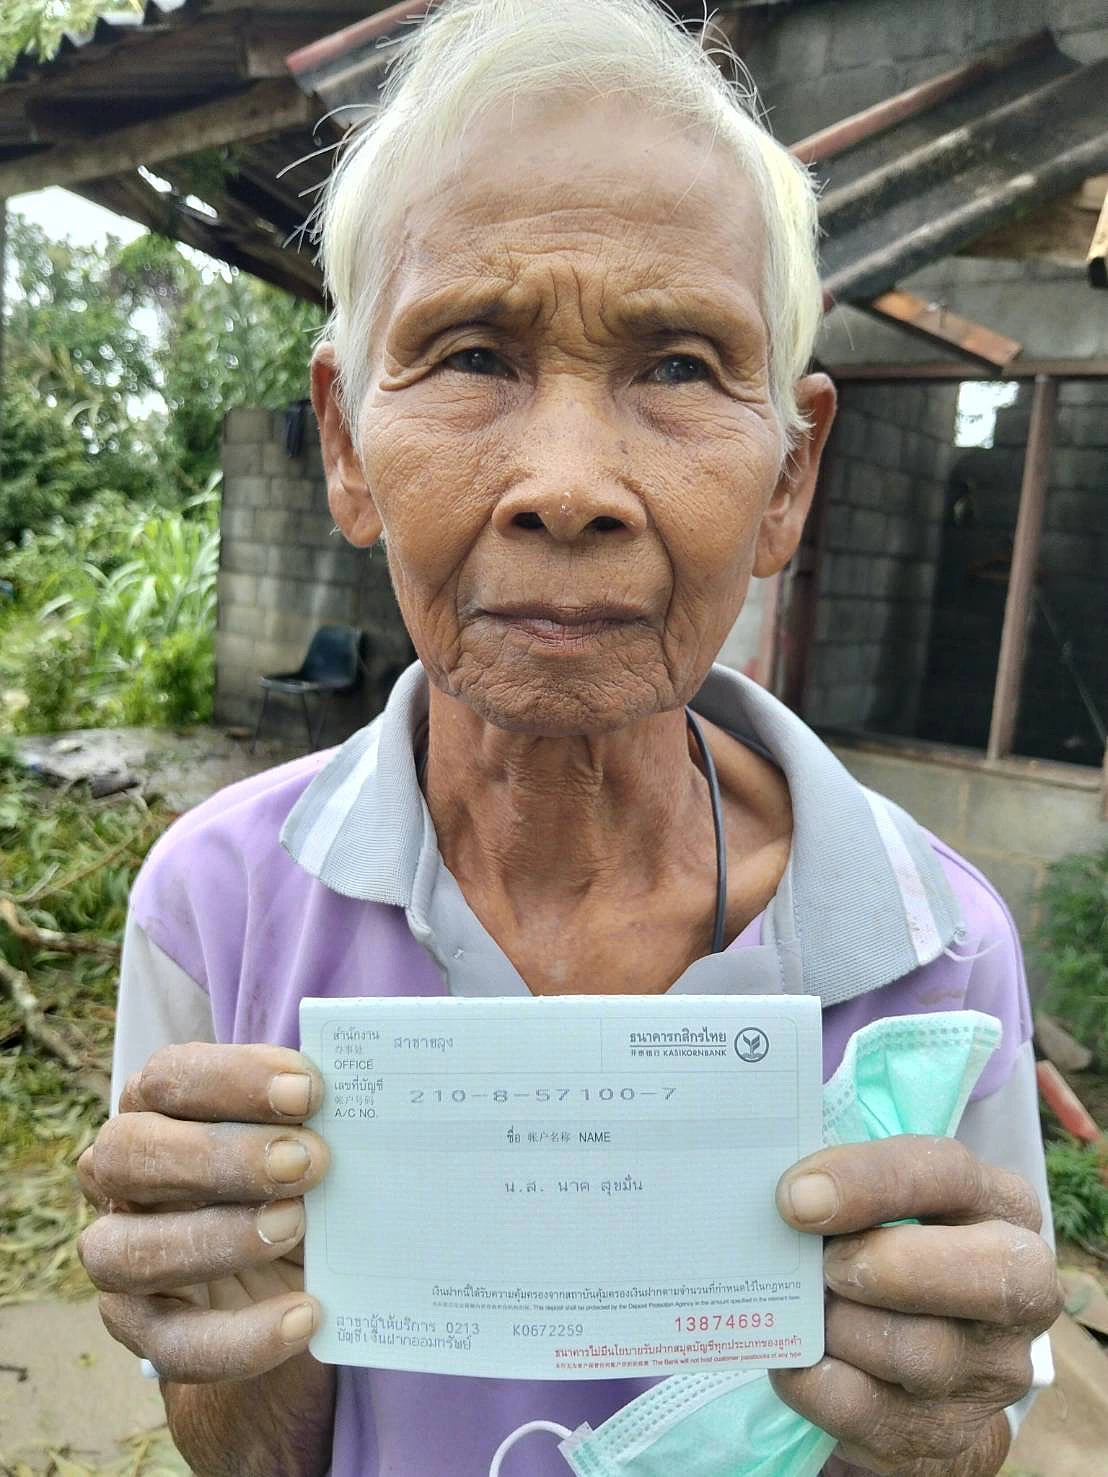 สำนักงาน
办事处
OFFICE
สาขาขลุง
ธนาคารกสิกรไทย
开泰银行 KASIKORNBANK
เลขที่บัญชี
帐户号码
A/C NO.
210-8-57100-7
ชื่อ 帐户名称 NAME
น.ส. นาค สุขมั่น
เงินฝากนี้ได้รับความคุ้มครองจากสถาบันคุ้มครองเงินฝากตามจำนวนที่กำหนดไว้ในกฎหมาย
This deposit shall be protected by the Deposit Protection Agency in the amount specified in the relevant laws.
สาขาผู้ให้บริการ 0213 K0672259 13874693
บัญชีเงินฝากออมทรัพย์
ธนาคารไม่มีนโยบายรับฝากสมุดบัญชีทุกประเภทของลูกค้า
The Bank will not hold customer passbooks of any type